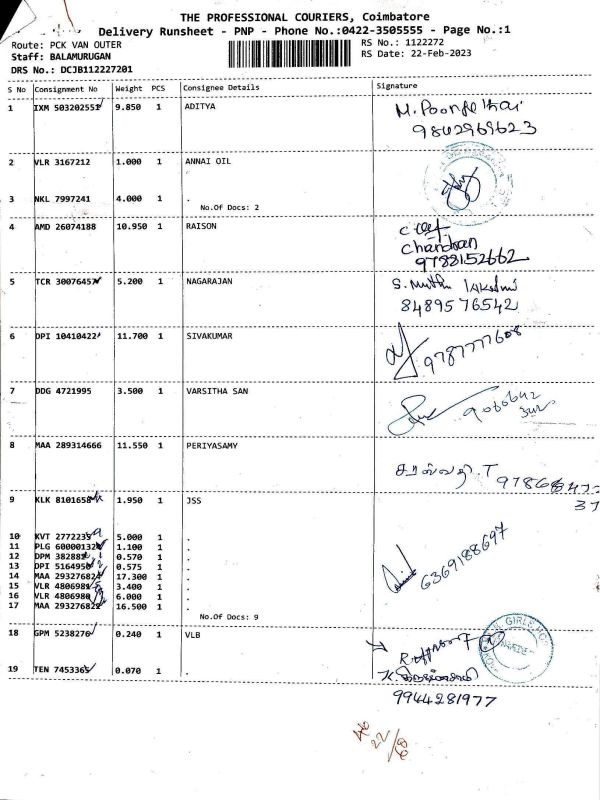 THE PROFESSIONAL COURIERS, Coimbatore
Delivery Runsheet - PNP - Phone No.:0422-3505555 - Page No.:1
Route: PCK VAN OUTER RS No.: 1122272
Staff: BALAMURUGAN RS Date: 22-Feb-2023
DRS No.: DCJB112227201
S No Consignment No Weight PCS Consignee Details Signature
1 IXM 503202552 9.850 1 ADITYA
M. Poongothai
9842969623
2 VLR 3167212 1.000 1 ANNAI OIL
3 NKL 7997241 4.000 1 .
No.Of Docs: 2
4 AMD 26074188 10.950 1 RAISON
Chandran
9788152662
5 TCR 30076457 5.200 1 NAGARAJAN
S. Muthu lakshmi
8489576542
6 DPI 10410422 11.700 1 SIVAKUMAR
9787777608
7 DDG 4721995 3.500 1 VARSITHA SAN
8 MAA 289314666 11.550 1 PERIYASAMY
சரஸ்வதி. T
9 KLK 8101658 1.950 1 JSS
10 KVT 2772235 5.000 1 .
11 PLG 60000132 1.100 1 .
12 DPM 382882 0.570 1 .
13 DPI 5164950 0.575 1 .
14 MAA 293276824 17.300 1 .
15 VLR 4806981 3.400 1 .
16 VLR 4806980 6.000 1 .
17 MAA 293276822 16.500 1 .
6369188697
No.Of Docs: 9
18 GPM 5238276 0.240 1 VLB
19 TEN 7453365 0.070 1 .
9944281977